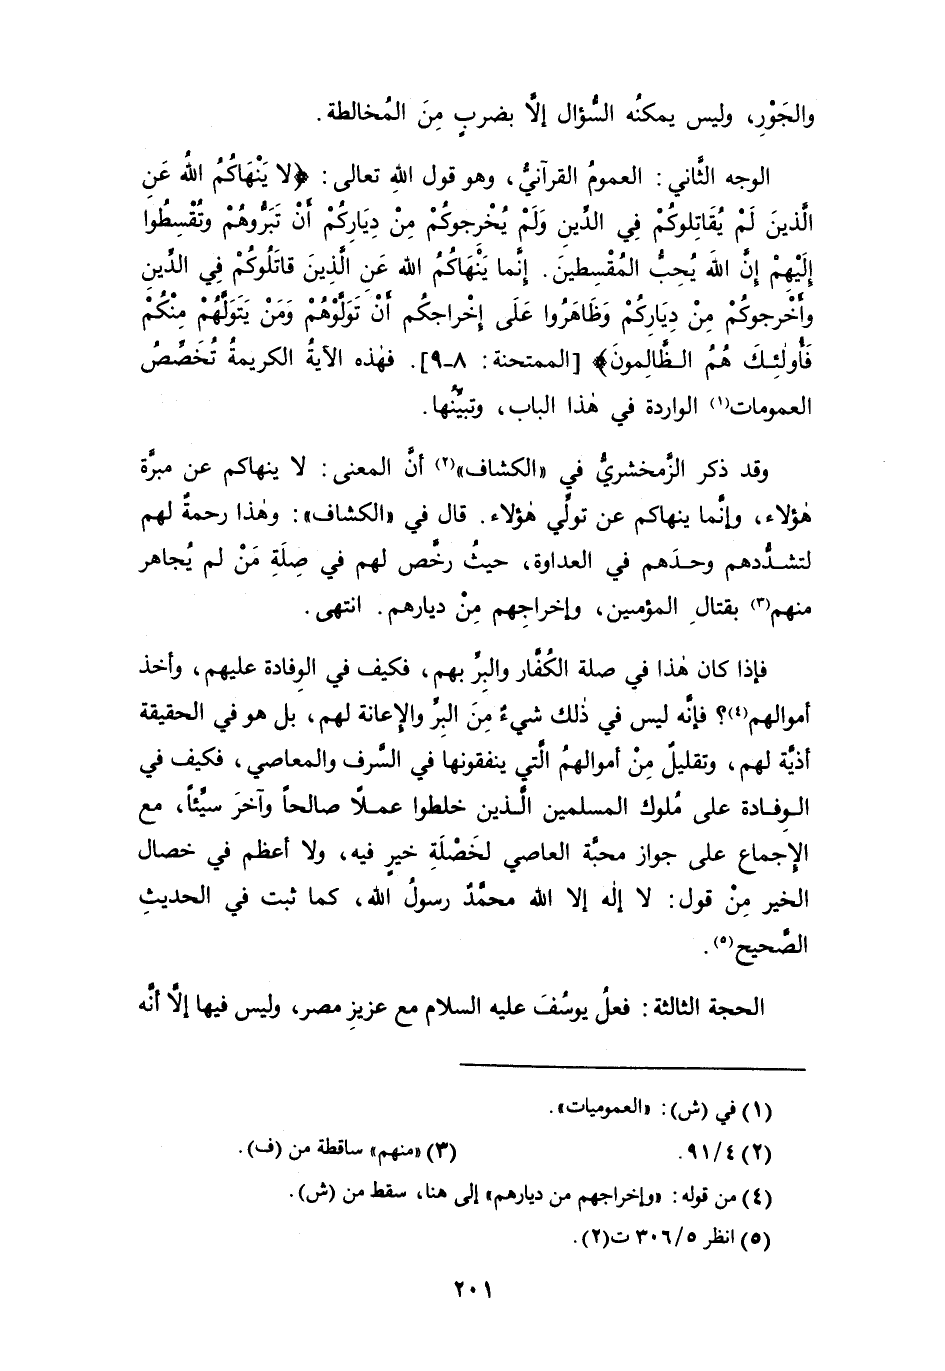 والجَوْرِ، وليس يمكنُه السُّؤال إلَّا بضربٍ مِنَ المُخالطة.
الوجه الثَّاني: العمومُ القرآنيُّ، وهو قول اللهِ تعالى: ﴿لا يَنْهَاكُمُ اللهُ عَنِ
الَّذينَ لَمْ يُقَاتِلوكُمْ فِي الدِّينِ وَلَمْ يُخْرِجوكُمْ مِنْ دِيَارِكُمْ أَنْ تَبَرُّوهُمْ وتُقْسِطُوا
إِلَيْهِمْ إِنَّ اللهَ يُحِبُّ المُقْسِطينَ. إِنَّما يَنْهَاكُمُ الله عَنِ الَّذِينَ قاتَلُوكُمْ فِي الدِّينِ
وأَخْرجوكُمْ مِنْ دِيَارِكُمْ وَظَاهَرُوا عَلَى إِخْراجكُم أَنْ تَوَلَّوْهُمْ وَمَنْ يَتَوَلَّهُمْ مِنْكُمْ
فَأُولٰئِكَ هُمُ الظَّالِمونَ﴾ [الممتحنة: ٨-٩]. فهٰذه الآيةُ الكريمةُ تُخَصِّصُ
العمومات(١) الواردة في هٰذا الباب، وتبيِّنُها.
وقد ذكر الزَّمخشريُّ في «الكشاف»(٢) أنَّ المعنى: لا ينهاكم عن مبرَّة
هٰؤلاء، وإنَّما ينهاكم عن تولِّي هٰؤلاء. قال في «الكشاف»: وهٰذا رحمةٌ لهم
لتشدُّدهم وحدَهم في العداوة، حيثُ رخَّص لهم في صِلَةِ مَنْ لم يُجاهر
منهم(٣) بقتالِ المؤمنين، وإخراجِهم مِنْ ديارهم. انتهى.
فإذا كان هٰذا في صلة الكُفَّار والبِرِّ بهم، فكيف في الوِفادة عليهم، وأخذ
أموالهم(٤)؟ فإنَّه ليس في ذٰلك شيءٌ مِنَ البِرِّ والإِعانة لهم، بل هو في الحقيقة
أذيَّة لهم، وتقليلٌ مِنْ أموالهمُ الَّتي ينفقونها في السَّرف والمعاصي، فكيف في
الوِفادة على مُلوك المسلمين الَّذين خلطوا عملًا صالحاً وآخرَ سيِّئاً، مع
الإِجماع على جواز محبَّة العاصي لخَصْلَةِ خيرٍ فيه، ولا أعظم في خصال
الخير مِنْ قول: لا إلٰه إلا الله محمَّدٌ رسولُ الله، كما ثبت في الحديثِ
الصَّحيح(٥).
الحجة الثالثة: فعلُ يوسُفَ عليه السلام مع عزيزِ مصر، وليس فيها إلَّا أنَّه
(١) في (ش): «العموميات».
(٢) ٩١/٤. (٣) «منهم» ساقطة من (ف).
(٤) من قوله: «وإخراجهم من ديارهم» إلى هنا، سقط من (ش).
(٥) انظر ٣٠٦/٥ ت(٢).
٢٠١